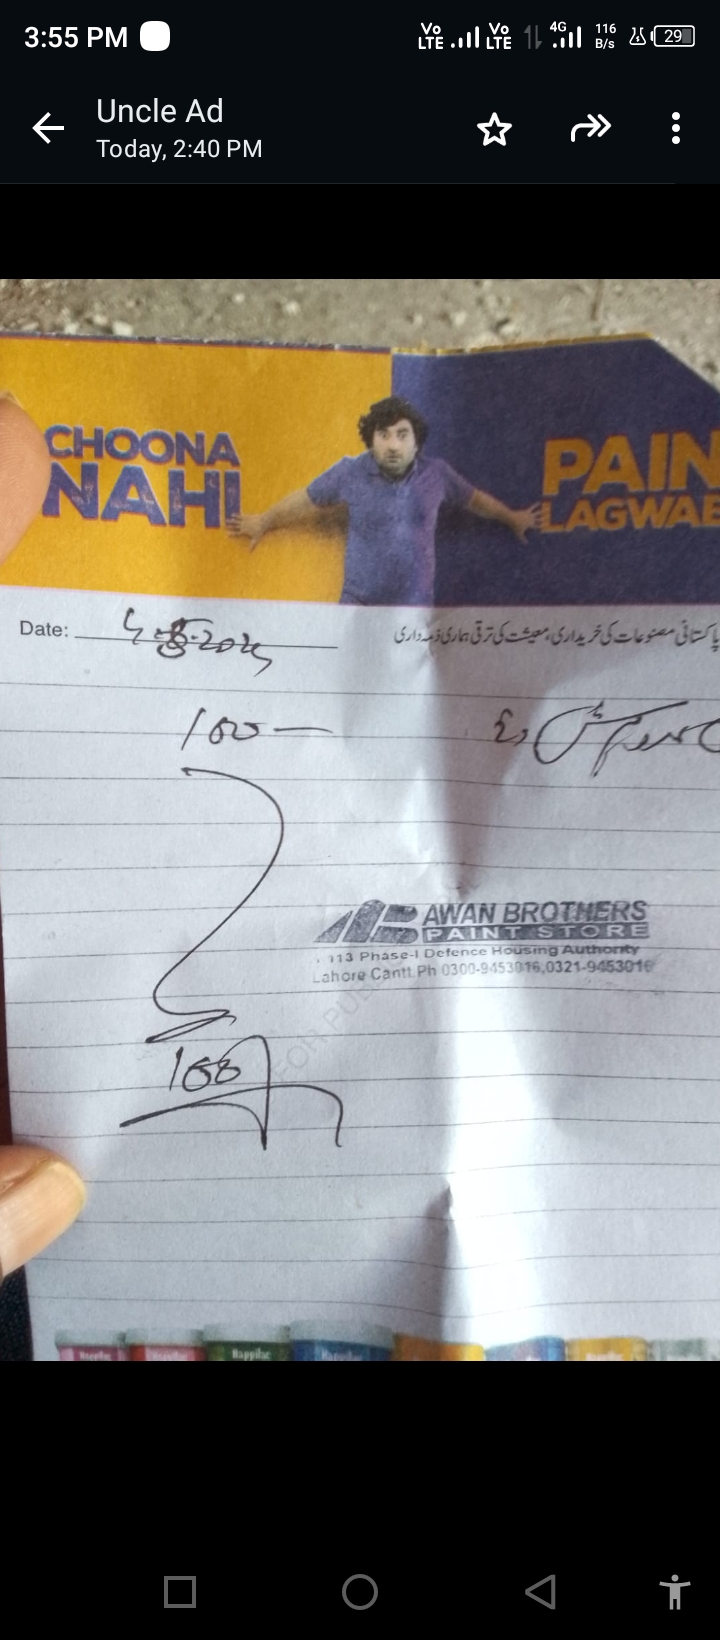 3:55 PM
Vo LTE Vo LTE 4G 116 B/s 29
Uncle Ad
Today, 2:40 PM
CHOONA
NAHI
PAIN
LAGWAE
Date:
پاکستانی مصنوعات کی خریداری، معیشت کی ترقی ہماری ذمہ داری
100
AB AWAN BROTHERS
PAINT STORE
113 Phase-I Defence Housing Authority
Lahore Cantt Ph 0300-9453016,0321-9453016
FOR PU
100
Happilac
Happilac